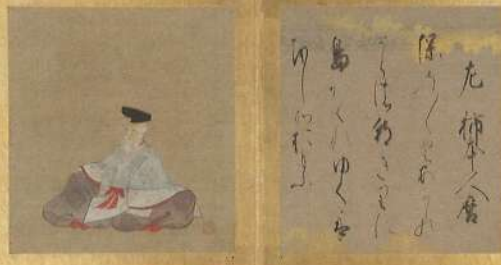 左 柿本人麿
保の〱とあかしの
うらの朝きりに
島かくれゆく舟
をしそおもふ